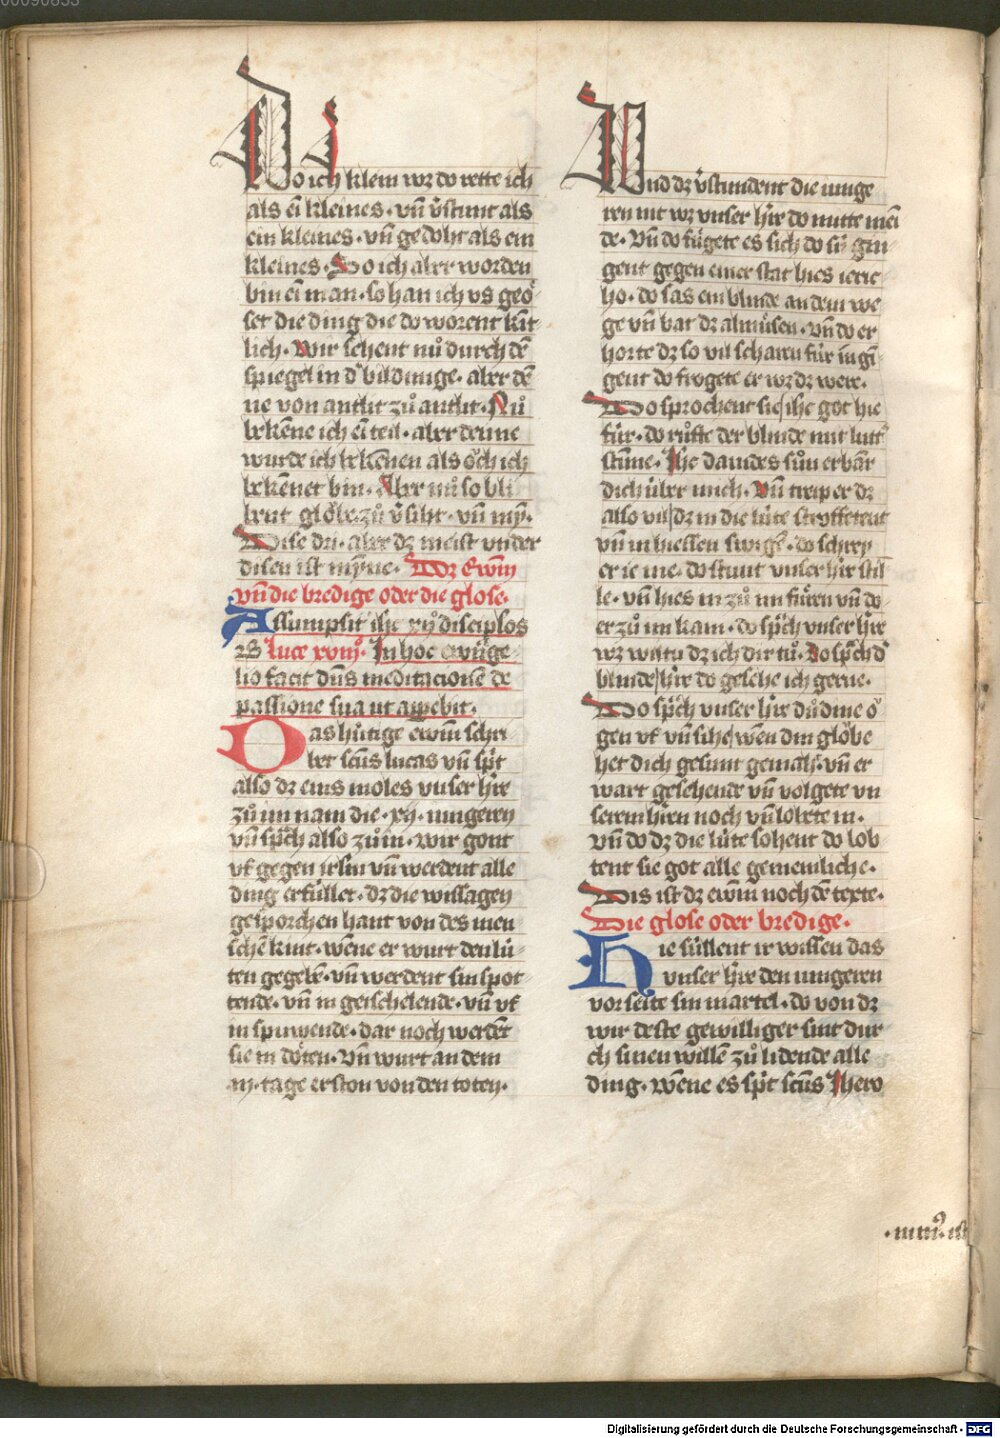 00090833
Do ich klein wz do rette ich
als ei kleines · vn̄ v̓stunt als
ein kleines · vn̄ gedoht als ein
kleines · So ich aber worden
bin ei man · so han ich vs geo᷒
set die ding die do worent kint
lich · Wir sehent nů durch dē
spiegel in d̓ bildunge · aber dē
ne von antlit zů antlit · Nů
bekēne ich ei teil · aber denne
wurde ich bekēnen als ŏch ich
bekēnet bin · Aber nů so bli
bent glŏbe · zů v̓siht · vn̄ myn̄ ·
Dise dri · aber dz meist vnder
disen ist myn̄ne · Dz Ewm̄
vn̄ die bredige oder die glose ·
Assumpsit ihc xij disciplos
Luce xviij⁰ · In hoc ewāge-
lio facit dn̄s meditacionē de
passione sua ut apparebit ·
Das hütige ewm̄ schri
bet scūs lucas vn̄ sp̄t
also dz eins moles vnser h̓re
zů im nam die · xij · iungeren
vn̄ sp̄ch also zů in · wir gont
vf gegen irlm̄ vn̄ werdent alle
ding erfüllet · dz die wissagen
gesprochen hant von des men
schē kint · wēne er wurt den lü-
ten gegebē · vn̄ werdent sin spot-
tende · vn̄ in geischelende · vn̄ vf
in spuwende · dar noch werdēt
sie in dŏten · vn̄ wurt an dem
iij · tage erston von den toten ·
Und dz v̓stundent die iunge
ren nit wz vnser h̓re do mitte mei
de · Vn̄ do fůgete es sich do sü gin
gent gegen einer stat hies ieric
ho · do sas ein blinde an dem we
ge vn̄ bat dz almůsen · vn̄ do er
horte dz so vil scharen für in gi
gent do frogete er wz dz were ·
Do sprochent sie ihc got hie
für · do růfte der blinde mit lutt̓
stīme · Ihc dauides sůn erbar
dich über mich · Vn̄ treip er dz
also vil dz in die lüte stroffetent
vn̄ in hiessen swigē · do schrey
er ie me · do stunt vnser h̓re stil
le · vn̄ hies in zů im füren vn̄ do
er zů im kam · do sp̄ch vnser h̓re
wz wiltu dz ich dir tů · Do sp̄ch d̓
blinde h̓re do gesehe ich gerne ·
Do sp̄ch vnser h̓re dů dine ŏ
gen vf vn̄ sihe wēn din glŏbe
het dich gesunt gemaht · vn̄ er
wart gesehende vn̄ volgete vn
serem h̓ren noch vn̄ lobete in ·
vn̄ do dz die lüte sohent do lob
tent sie got alle gemeinliche ·
Dis ist dz ewm̄ noch dē texte ·
Die glose oder bredige ·
Hie süllent ir wissen das
vnser h̓re den iungeren
vor seite sin martel · do von dz
wir deste gewilliger sint dur
ch sinen willē zů lidende alle
ding · wēne es sp̄t scūs Ihero
Digitalisierung gefördert durch die Deutsche Forschungsgemeinschaft - DFG